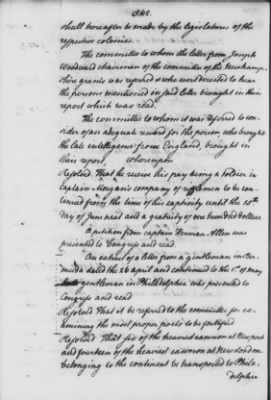 348.
shall hereafter be made by the legislatures of the
respective colonies.
The committee to whom the letter from Joseph
Woodward chairman of the committee of the New hamp-
shire grants was refered & who were directed to hear
the persons mentioned in said letter brought in their
report which was read.
The committee to whom it was refered to con-
sider of an adequate reward for the person, who brought
the late intelligence from England, brought in
their report, whereupon
Resolved That he receive his pay being a soldier in
Captain Morgans company of riflemen to be con-
tinued from the time of his captivity until the 15th
day of June next and a gratuity of one hundred dollars
A petition from captain Herman Allen was
presented to Congress and read.
An extract of a letter from a gentleman in Ber-
muda dated the 26 april and continued to the 1st of may
gentleman in Philadelphia was presented to
Congress and read
Resolved That it be refered to the committee for ex-
amining the most proper ports to be fortifyed
Resolved That six of the heaviest cannon at Newport
and fourteen of the heaviest cannon at New london
belonging to the continent be transported to Phila-
delphia